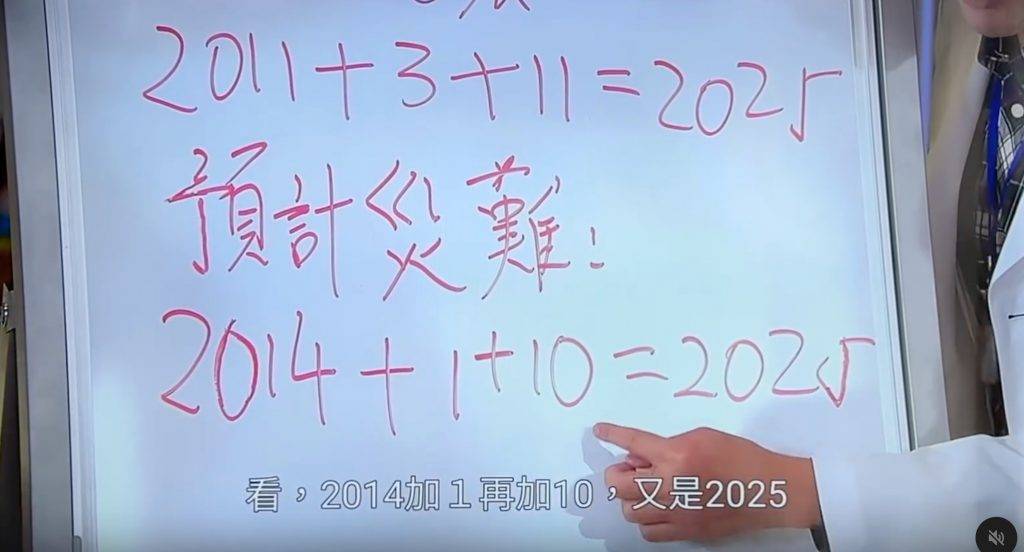 2011+3+11=2025
預計災難:
2014+1+10=2025
看，2014加１再加10，又是2025